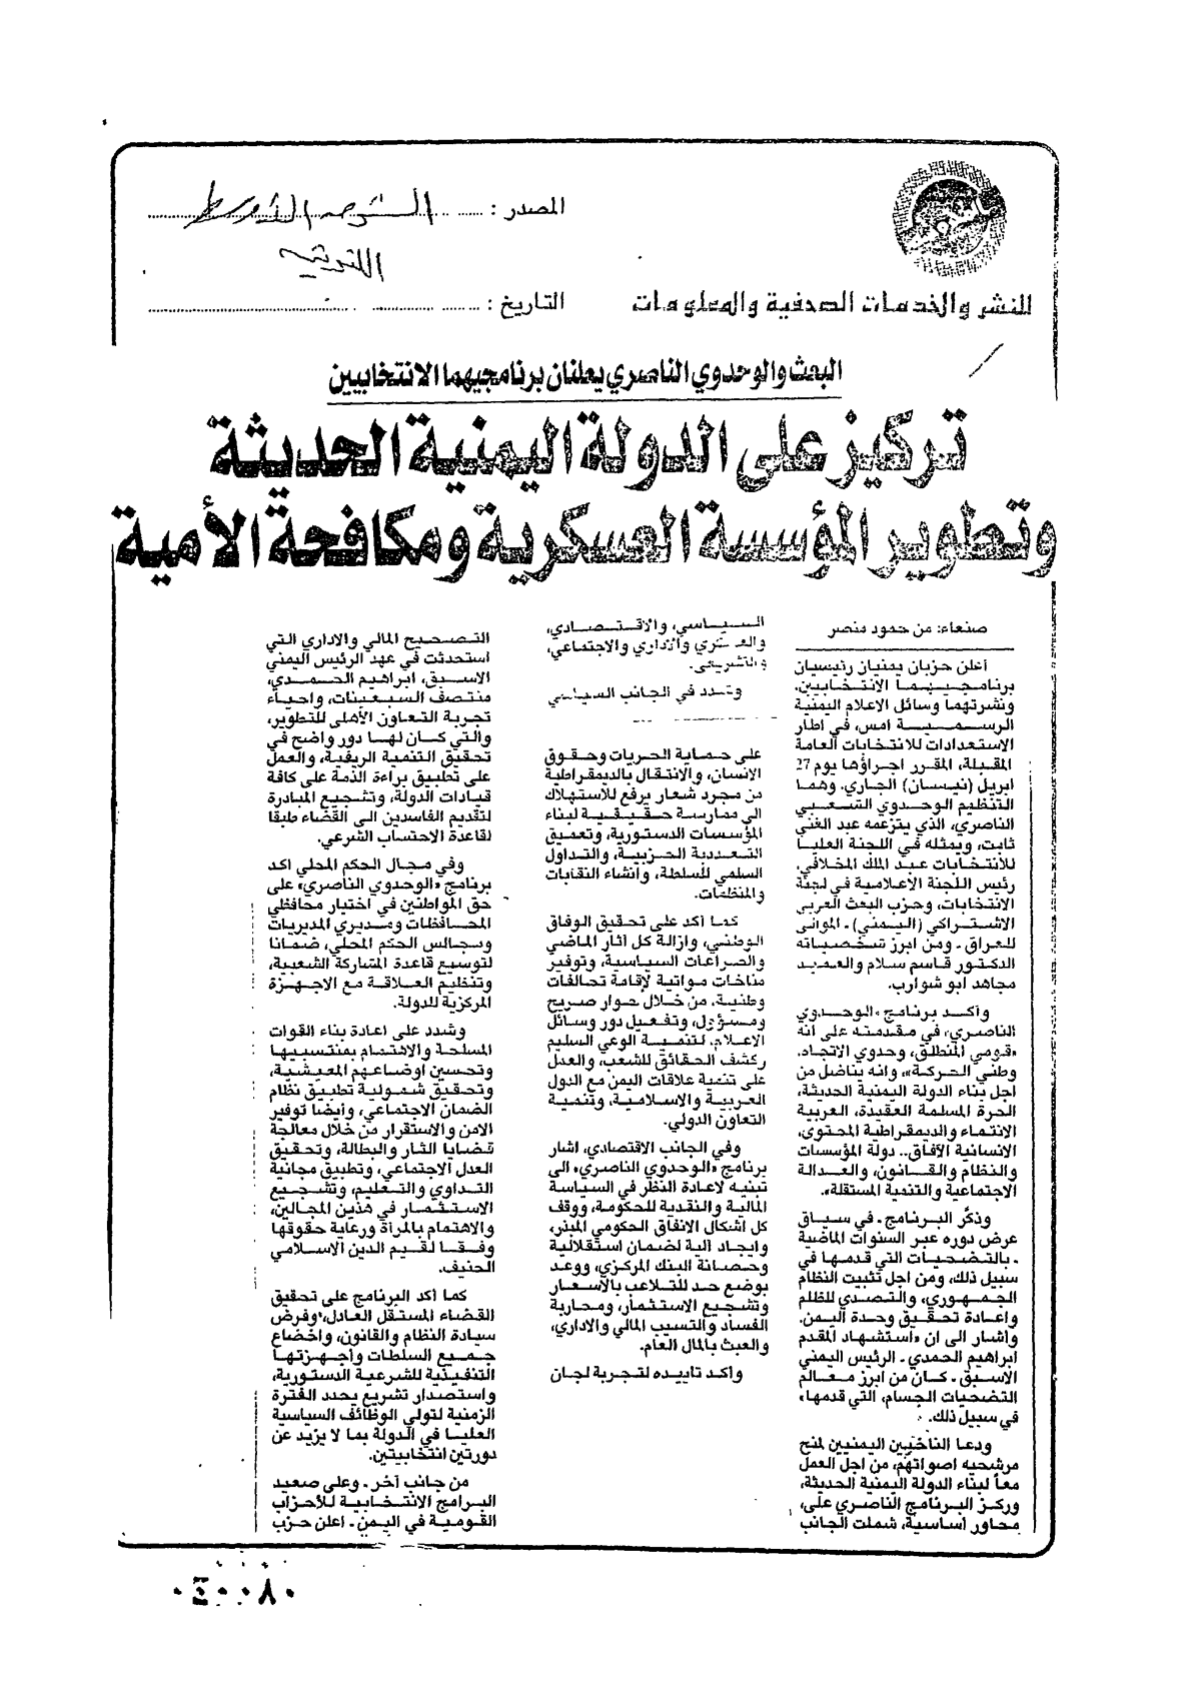 المصدر : الشرق الأوسط
اللندنية
للنشر والخدمات الصحفية والمعلومات
التاريخ :
البعث والوحدوي الناصري يعلنان برنامجيهما الانتخابيين
تركيز على الدولة اليمنية الحديثة
وتطوير المؤسسة العسكرية ومكافحة الأمية
صنعاء: من حمود منصر
أعلن حزبان يمنيان رئيسيان
برنامجيهما الانتخابيين،
ونشرتهما وسائل الاعلام اليمنية
الرسمية امس، في اطار
الاستعدادات للانتخابات العامة
المقبلة، المقرر اجراؤها يوم 27
ابريل (نيسان) الجاري. وهما
التنظيم الوحدوي الشعبي
الناصري، الذي يتزعمه عبد الغني
ثابت، ويمثله في اللجنة العليا
للانتخابات عبد الملك المخلافي،
رئيس اللجنة الاعلامية في لجنة
الانتخابات، وحزب البعث العربي
الاشتراكي (اليمني) ـ الموالي
للعراق ـ ومن ابرز شخصياته
الدكتور قاسم سلام والعميد
مجاهد ابو شوارب.
وأكد برنامج «الوحدوي
الناصري» في مقدمته على انه
«قومي المنطلق، وحدوي الاتجاه،
وطني الحركة»، وانه يناضل من
اجل بناء الدولة اليمنية الحديثة،
الحرة المسلمة العقيدة، العربية
الانتماء والديمقراطية المحتوى،
الانسانية الآفاق.. دولة المؤسسات
والنظام والقانون، والعدالة
الاجتماعية والتنمية المستقلة».
وذكّر البرنامج ـ في سياق
عرض دوره عبر السنوات الماضية
ـ بالتضحيات التي قدمها في
سبيل ذلك، ومن اجل تثبيت النظام
الجمهوري، والتصدي للظلم
واعادة تحقيق وحدة اليمن.
واشار الى ان «استشهاد المقدم
ابراهيم الحمدي ـ الرئيس اليمني
الاسبق ـ كان من ابرز معالم
التضحيات الجسام، التي قدمها»
في سبيل ذلك.
ودعا الناخبين اليمنيين لمنح
مرشحيه اصواتهم، من اجل العمل
معاً لبناء الدولة اليمنية الحديثة،
وركز البرنامج الناصري على
محاور اساسية، شملت الجانب
السياسي، والاقتصادي،
والعسكري والاداري والاجتماعي،
والتشريعي.
وشدد في الجانب السياسي
على حماية الحريات وحقوق
الانسان، والانتقال بالديمقراطية
من مجرد شعار يرفع للاستهلاك
الى ممارسة حقيقية لبناء
المؤسسات الدستورية، وتعميق
التعددية الحزبية، والتداول
السلمي للسلطة، وانشاء النقابات
والمنظمات.
كما اكد على تحقيق الوفاق
الوطني، وازالة كل آثار الماضي
والصراعات السياسية، وتوفير
مناخات مواتية لإقامة تحالفات
وطنية، من خلال حوار صريح
ومسؤول، وتفعيل دور وسائل
الاعلام، لتنمية الوعي السليم
وكشف الحقائق للشعب، والعمل
على تنمية علاقات اليمن مع الدول
العربية والاسلامية، وتنمية
التعاون الدولي.
وفي الجانب الاقتصادي، اشار
برنامج «الوحدوي الناصري» الى
تبنيه لاعادة النظر في السياسة
المالية والنقدية للحكومة، ووقف
كل اشكال الانفاق الحكومي المبذر،
وايجاد آلية لضمان استقلالية
وحصانة البنك المركزي، ووعد
بوضع حد للتلاعب بالاسعار
وتشجيع الاستثمار، ومحاربة
الفساد والتسيب المالي والاداري،
والعبث بالمال العام.
وأكد تأييده لتجربة لجان
التصحيح المالي والاداري التي
استحدثت في عهد الرئيس اليمني
الاسبق، ابراهيم الحمدي،
منتصف السبعينات، واحياء
تجربة التعاون الأهلي للتطوير،
والتي كان لها دور واضح في
تحقيق التنمية الريفية، والعمل
على تطبيق براءة الذمة على كافة
قيادات الدولة، وتشجيع المبادرة
لتقديم الفاسدين الى القضاء طبقا
لقاعدة الاحتساب الشرعي.
وفي مجال الحكم المحلي اكد
برنامج «الوحدوي الناصري» على
حق المواطنين في اختيار محافظي
المحافظات ومديري المديريات
ومجالس الحكم المحلي، ضمانا
لتوسيع قاعدة المشاركة الشعبية،
وتنظيم العلاقة مع الاجهزة
المركزية للدولة.
وشدد على اعادة بناء القوات
المسلحة والاهتمام بمنتسبيها
وتحسين اوضاعهم المعيشية،
وتحقيق شمولية تطبيق نظام
الضمان الاجتماعي، وأيضا توفير
الامن والاستقرار من خلال معالجة
قضايا الثار والبطالة، وتحقيق
العدل الاجتماعي، وتطبيق مجانية
التداوي والتعليم، وتشجيع
الاستثمار في هذين المجالين،
والاهتمام بالمرأة ورعاية حقوقها
وفقا لقيم الدين الاسلامي
الحنيف.
كما أكد البرنامج على تحقيق
القضاء المستقل العادل، وفرض
سيادة النظام والقانون، واخضاع
جميع السلطات وأجهزتها
التنفيذية للشرعية الدستورية،
واستصدار تشريع يحدد الفترة
الزمنية لتولي الوظائف السياسية
العليا في الدولة بما لا يزيد عن
دورتين انتخابيتين.
من جانب آخر ـ وعلى صعيد
البرامج الانتخابية للأحزاب
القومية في اليمن ـ اعلن حزب